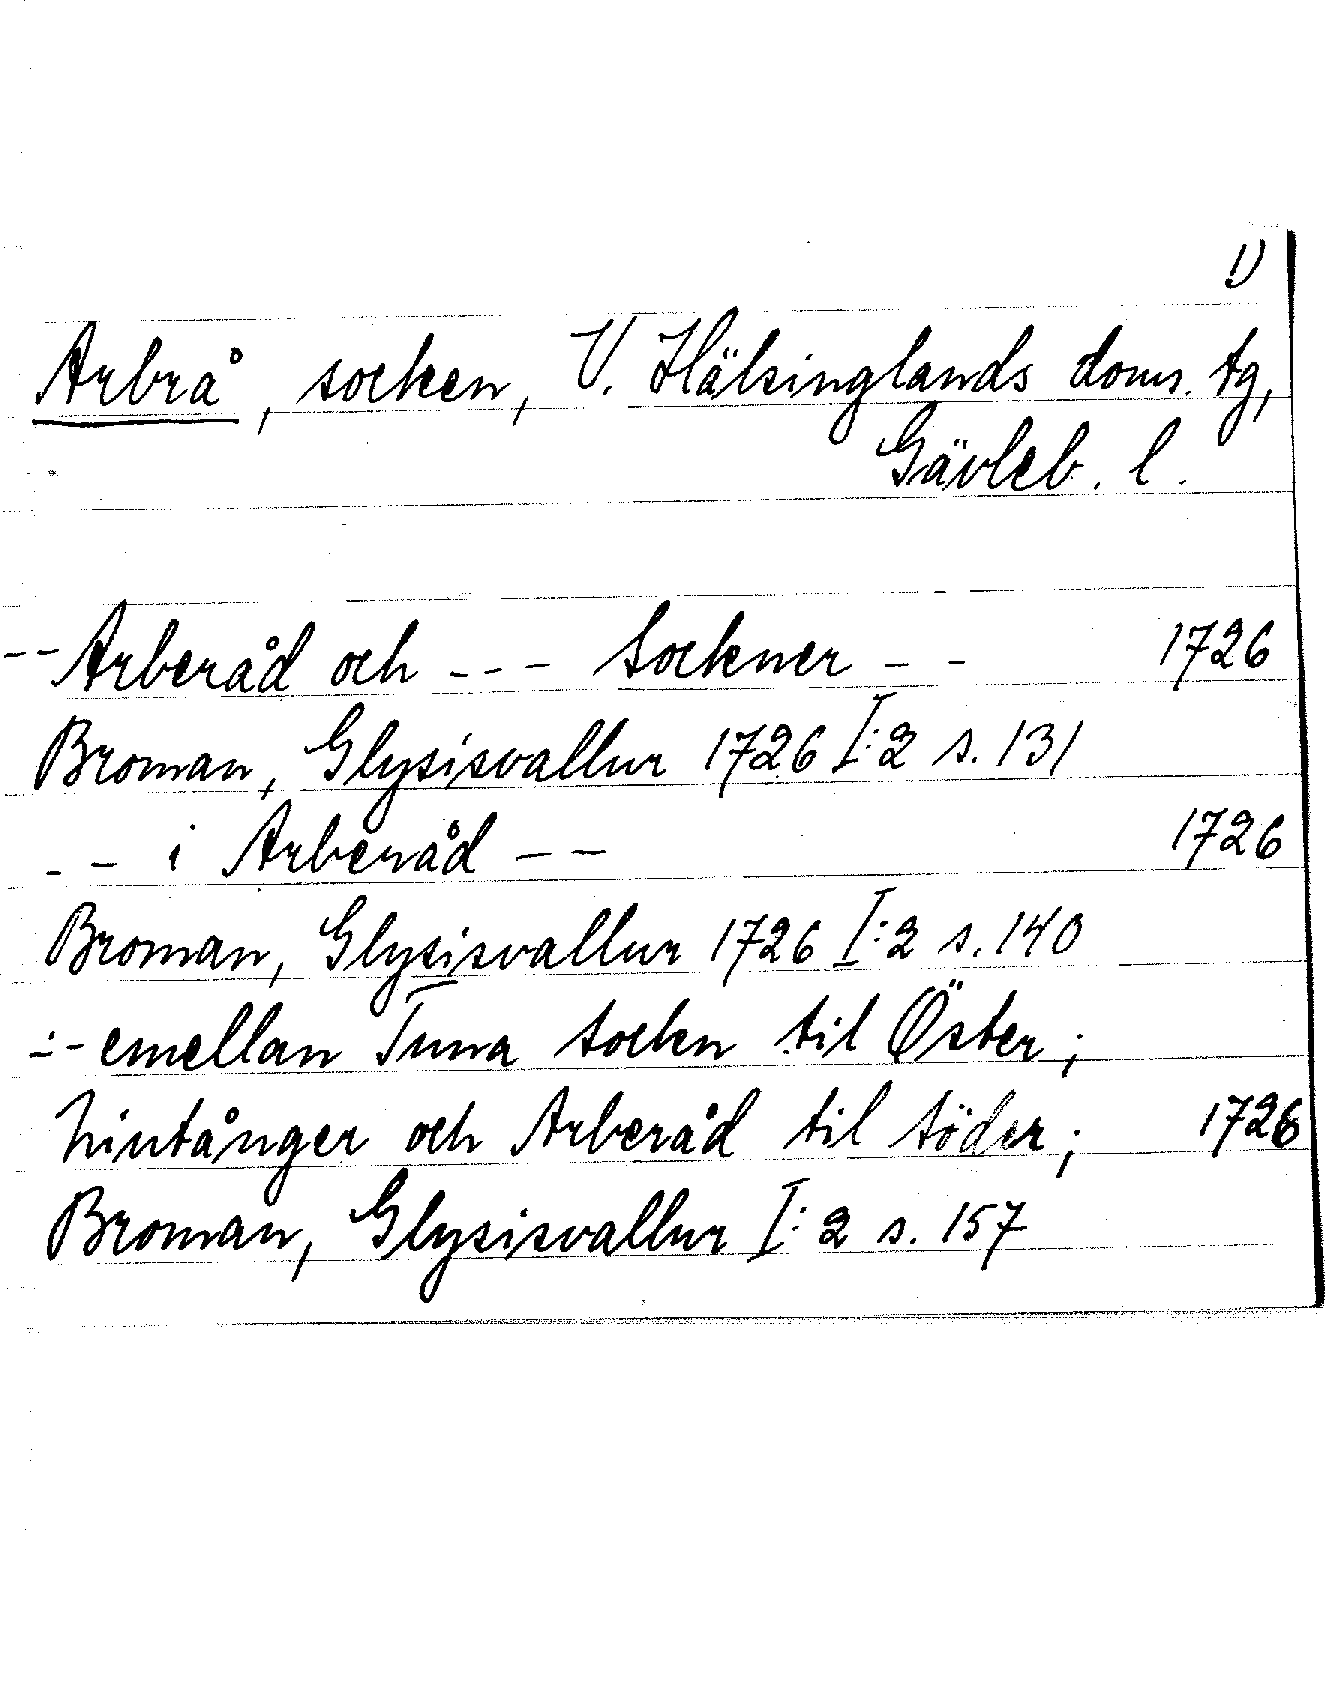 1)
Arbrå, socken, V. Hälsinglands doms. tg,
Gävleb. l.
-- Arberåd och --- Sockner -- 1726
Broman, Glysisvallur 1726 I:2 s. 131
-- i Arberåd -- 1726
Broman, Glysisvallur 1726 I:2 s. 140
-- emellan Tuna Sockn til Öster;
Nintånger och Arberåd til Söder; 1726
Broman, Glysisvallur I:2 s. 157